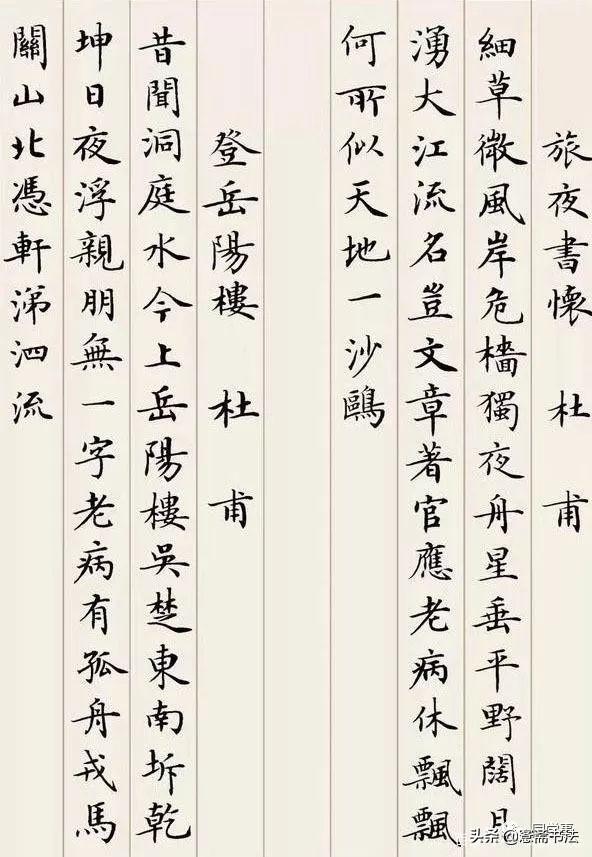 旅夜書懷 杜甫
細草微風岸危檣獨夜舟星垂平野闊月
湧大江流名豈文章著官應老病休飄飄
何所似天地一沙鷗
登岳陽樓 杜甫
昔聞洞庭水今上岳陽樓吳楚東南坼乾
坤日夜浮親朋無一字老病有孤舟戎馬
關山北憑軒涕泗流
头条 @愙斋书法